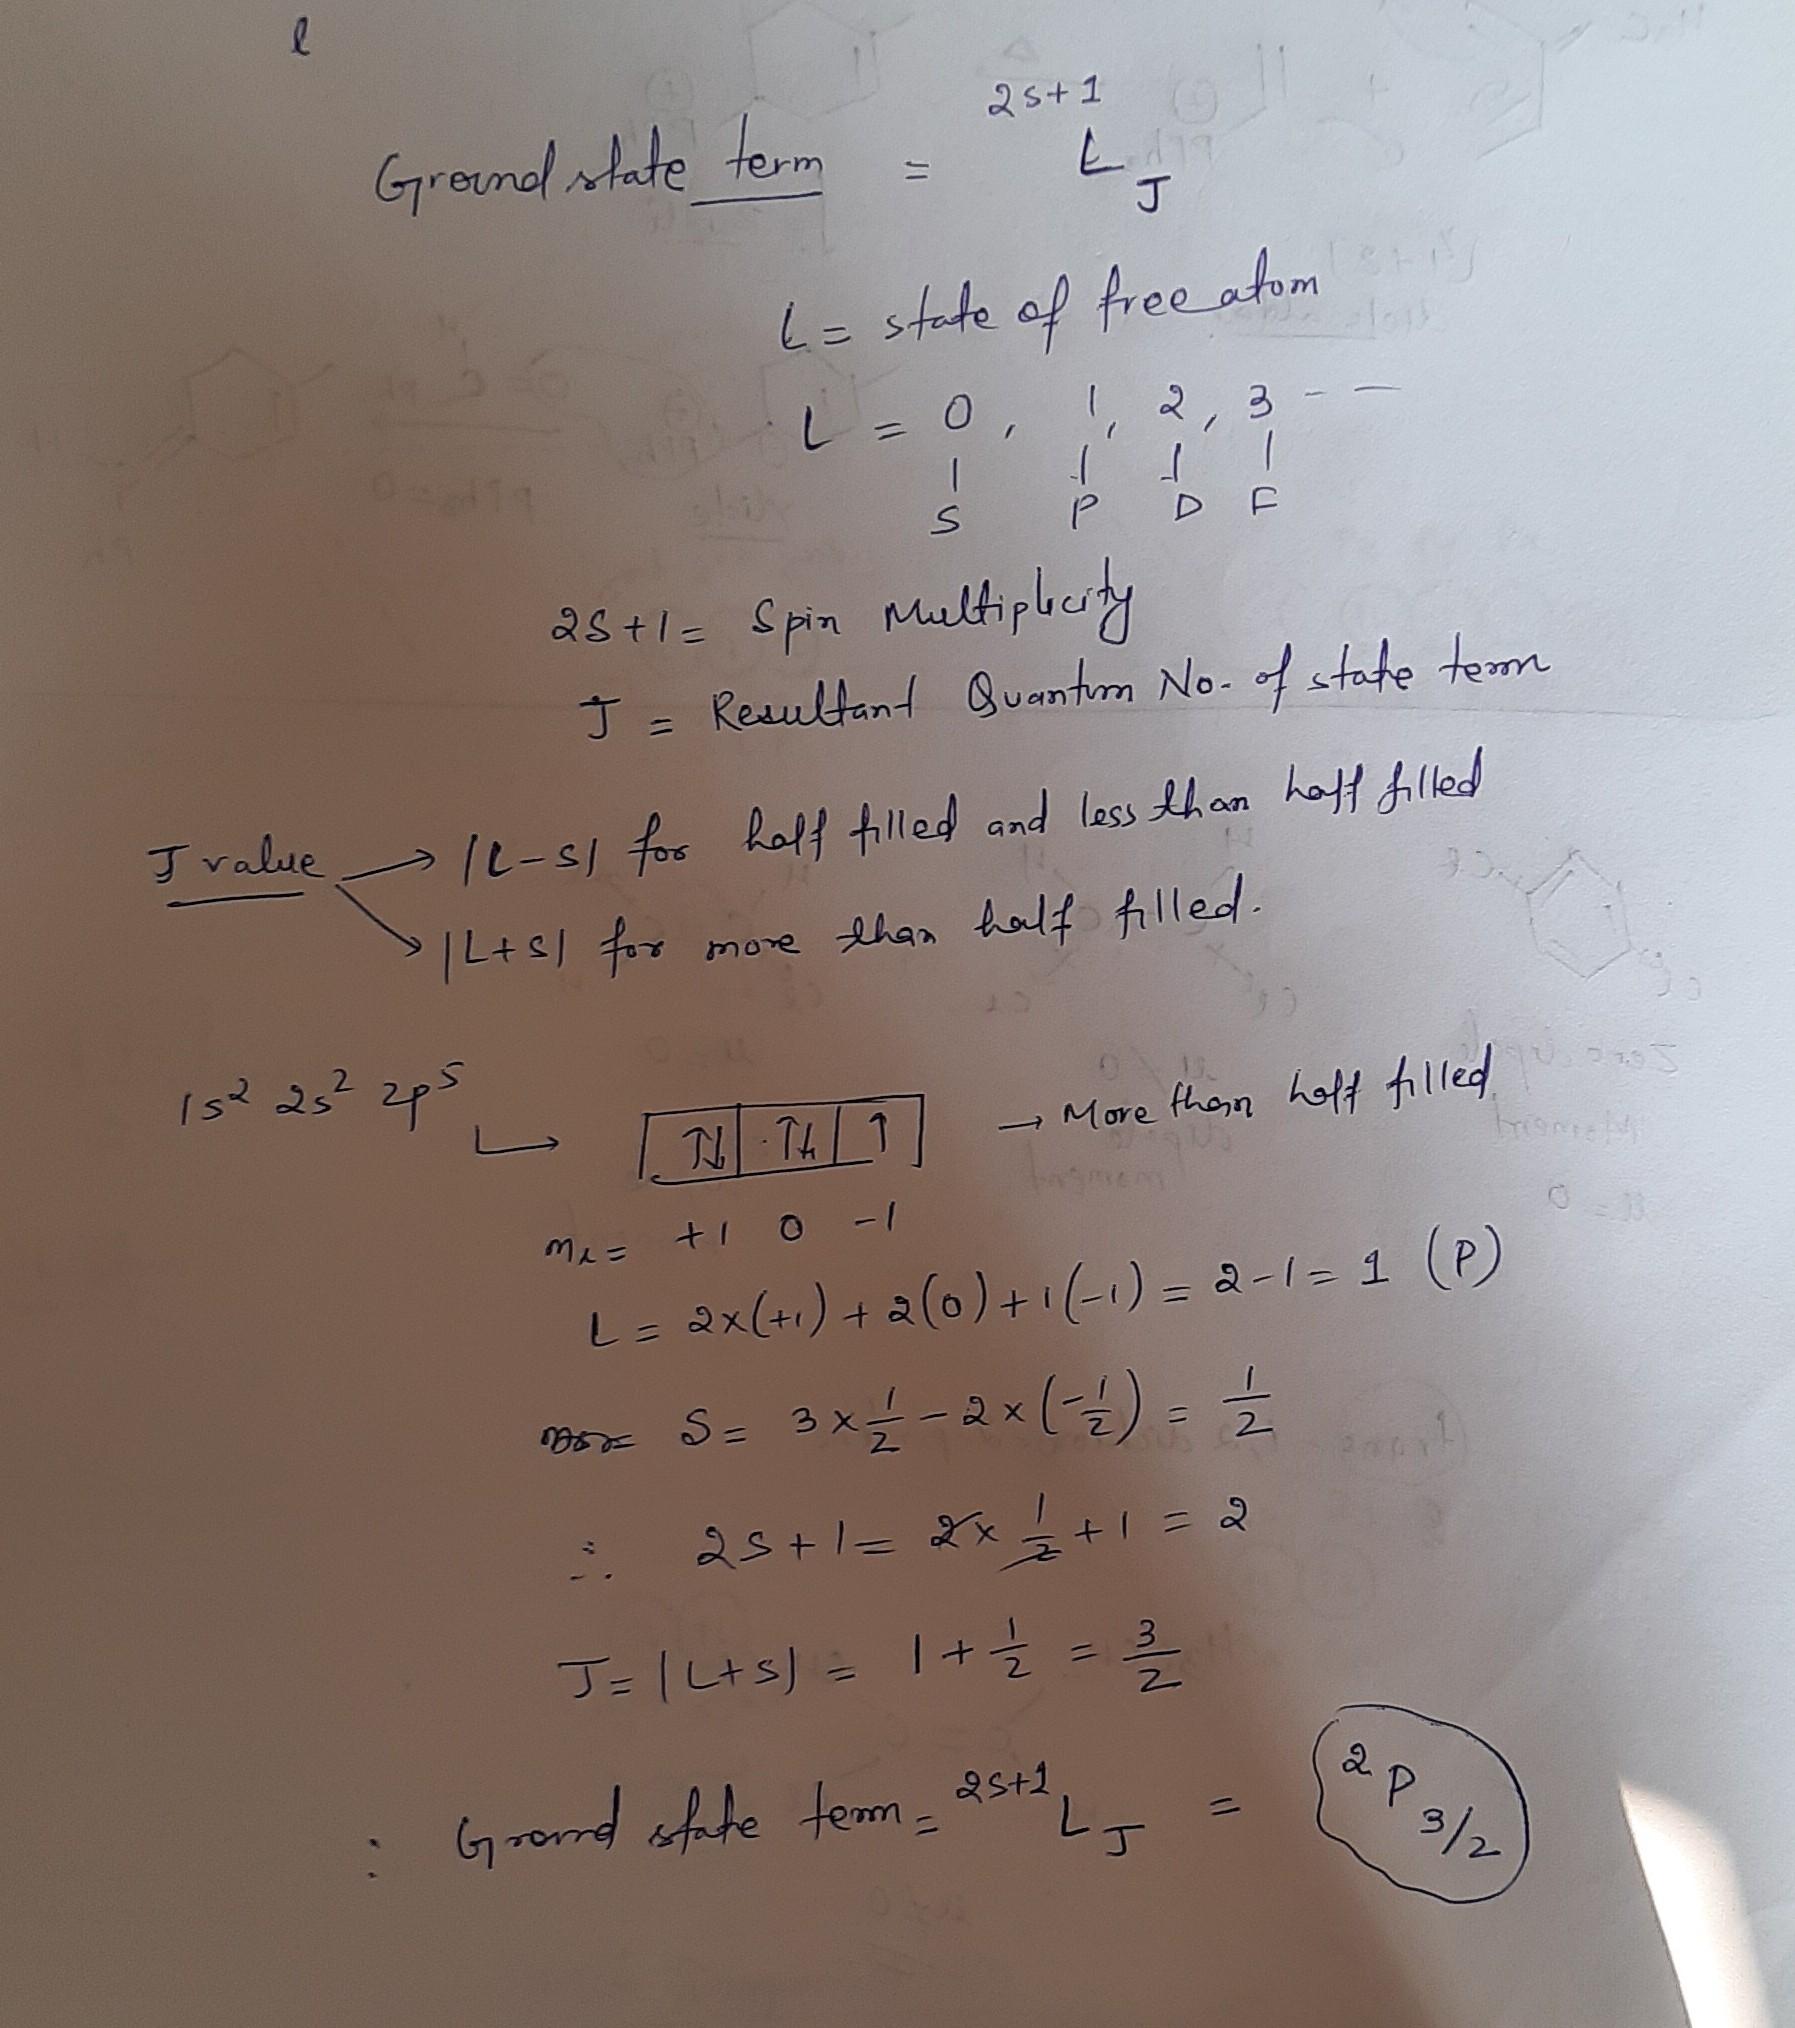 l
2s+1
Ground state term = L J
L = state of free atom
L = 0, 1, 2, 3 - -
S P D F
2S+1 = Spin Multiplicity
J = Resultant Quantum No. of state term
J value → |L-S| for half filled and less than half filled
→ |L+S| for more than half filled.
1s² 2s² 2p⁵ → ↑↓ ↑↓ ↑ → More than half filled
mₗ = +1 0 -1
L = 2x(+1) + 2(0) + 1(-1) = 2-1 = 1 (P)
S = 3 x 1/2 - 2 x (-1/2) = 1/2
∴ 2S+1 = 2 x 1/2 + 1 = 2
J = |L+S| = 1 + 1/2 = 3/2
∴ Ground state term = 2S+1 L J = ²P 3/2